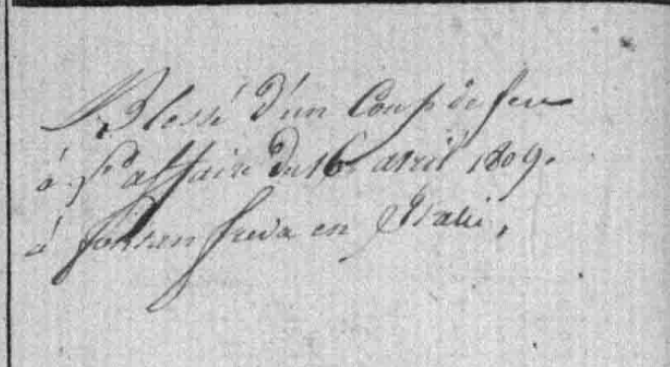 Blessé d'un Coup de feu
à l'affaire du 16 avril 1809.
à fonten freda en Italie,